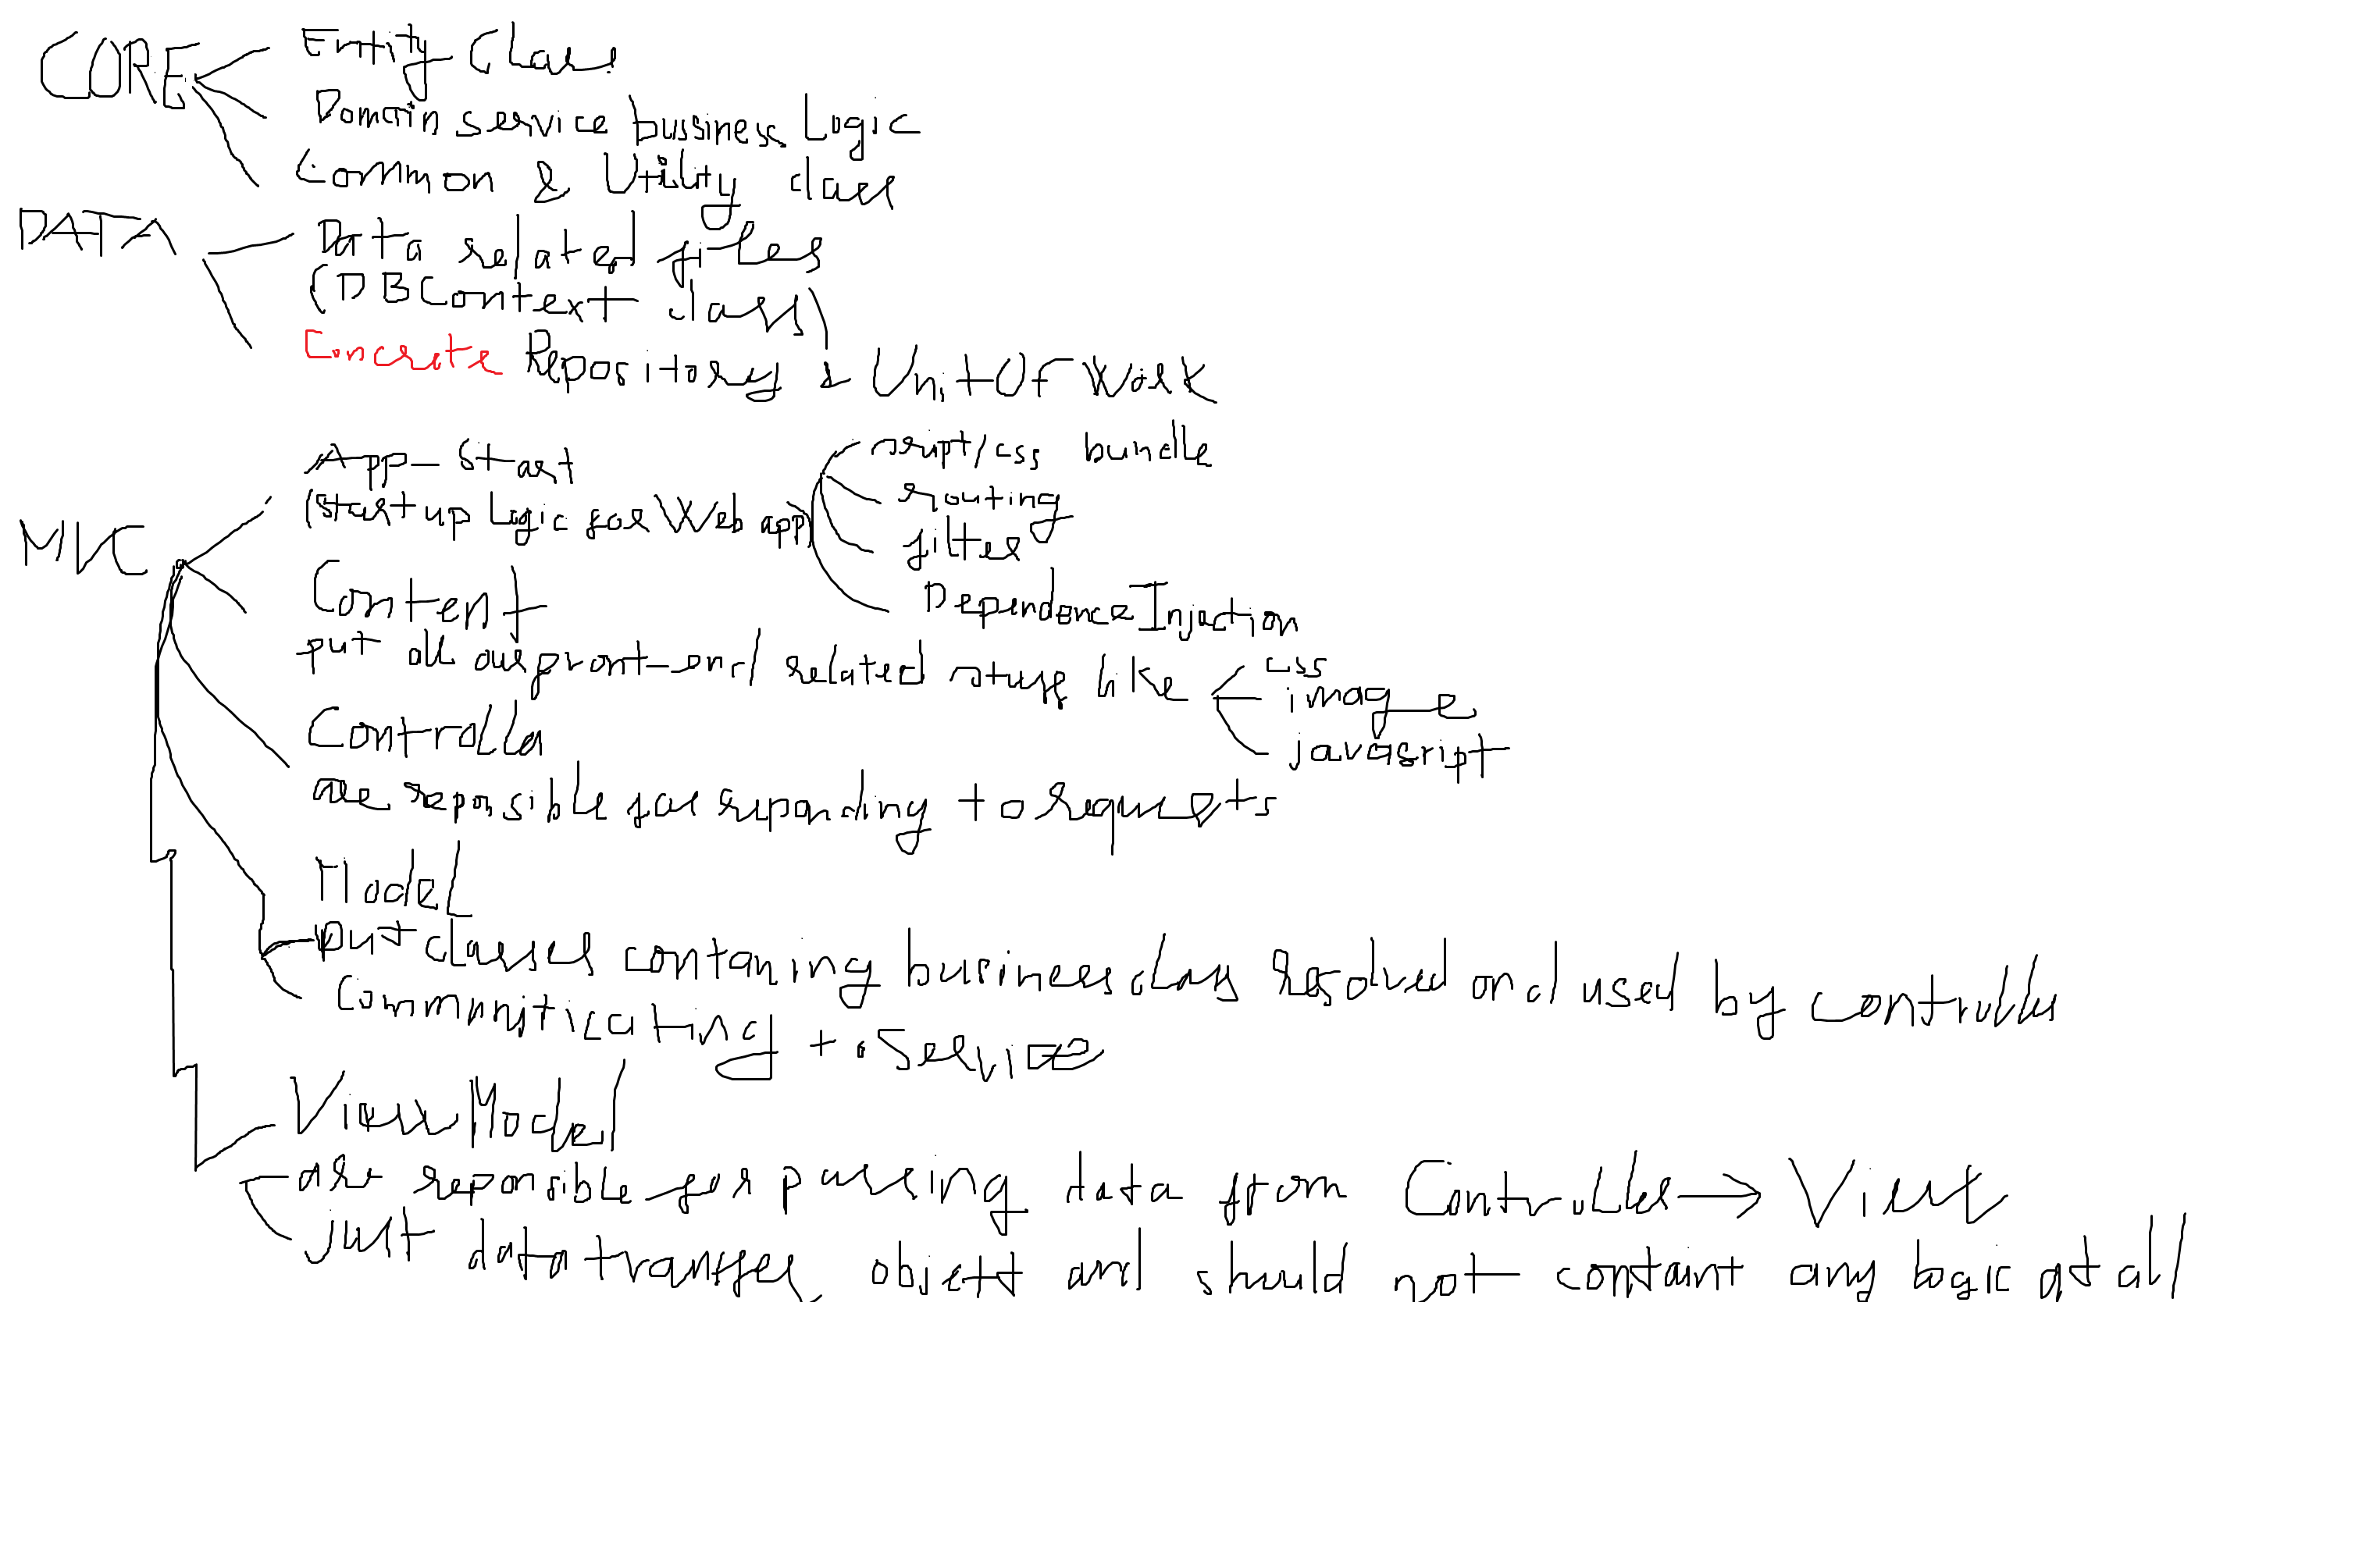 CORE
Entity Class
Domain service bussiness Logic
Common & Utility class
DATA
Data related files
(DBContext class)
Concrete Repository & UnitOfWork
MVC
App_Start
(Start up Logic for Web app)
script/css bundle
routing
filter
Dependence Injection
Content
put all our front-end related stuff like
css
image
javasript
Controller
are reponsible for reponding to requests
Model
put classes contaning business class resolved and used by controller
Communiticating to Service
ViewModel
are reponsible for passing data from Controller → View
just data transfer objett and should not containt any logic at all